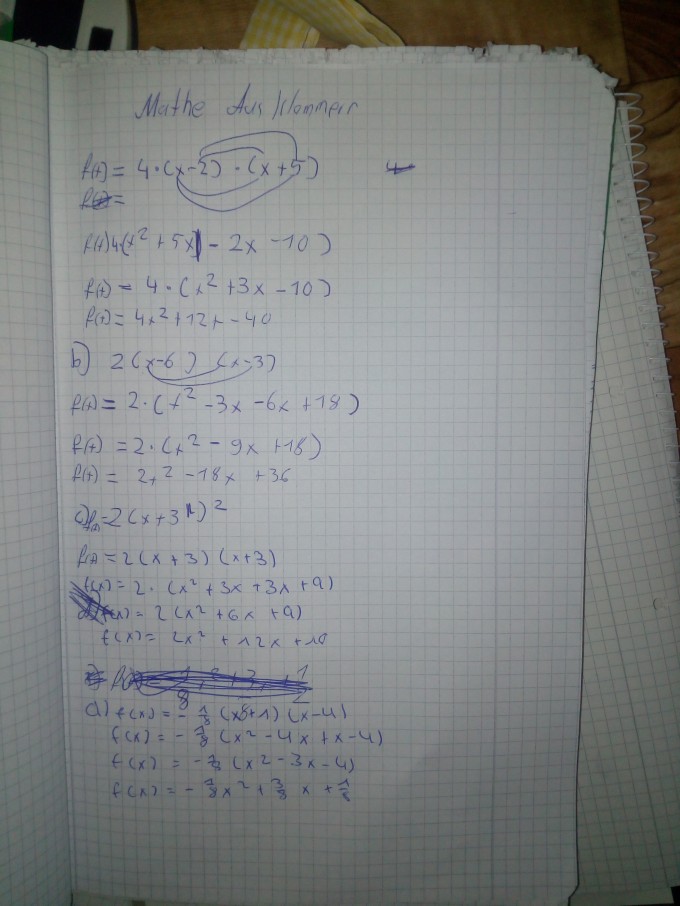 Mathe Ausklammern
f(x) = 4·(x-2)·(x+5)
f(x) =
f(x) 4·(x² + 5x - 2x - 10)
f(x) = 4·(x² + 3x - 10)
f(x) = 4x² + 12x - 40
b) 2(x-6) (x-3)
f(x) = 2·(x² - 3x - 6x + 18)
f(x) = 2·(x² - 9x + 18)
f(x) = 2x² - 18x + 36
c) f(x) = 2(x+3)²
f(x) = 2(x+3)(x+3)
f(x) = 2·(x² + 3x + 3x + 9)
f(x) = 2(x² + 6x + 9)
f(x) = 2x² + 12x + 18
d) f(x) = - 1/8 (x+1)(x-4)
f(x) = - 1/8 (x² - 4x + x - 4)
f(x) = - 1/8 (x² - 3x - 4)
f(x) = - 1/8 x² + 3/8 x +